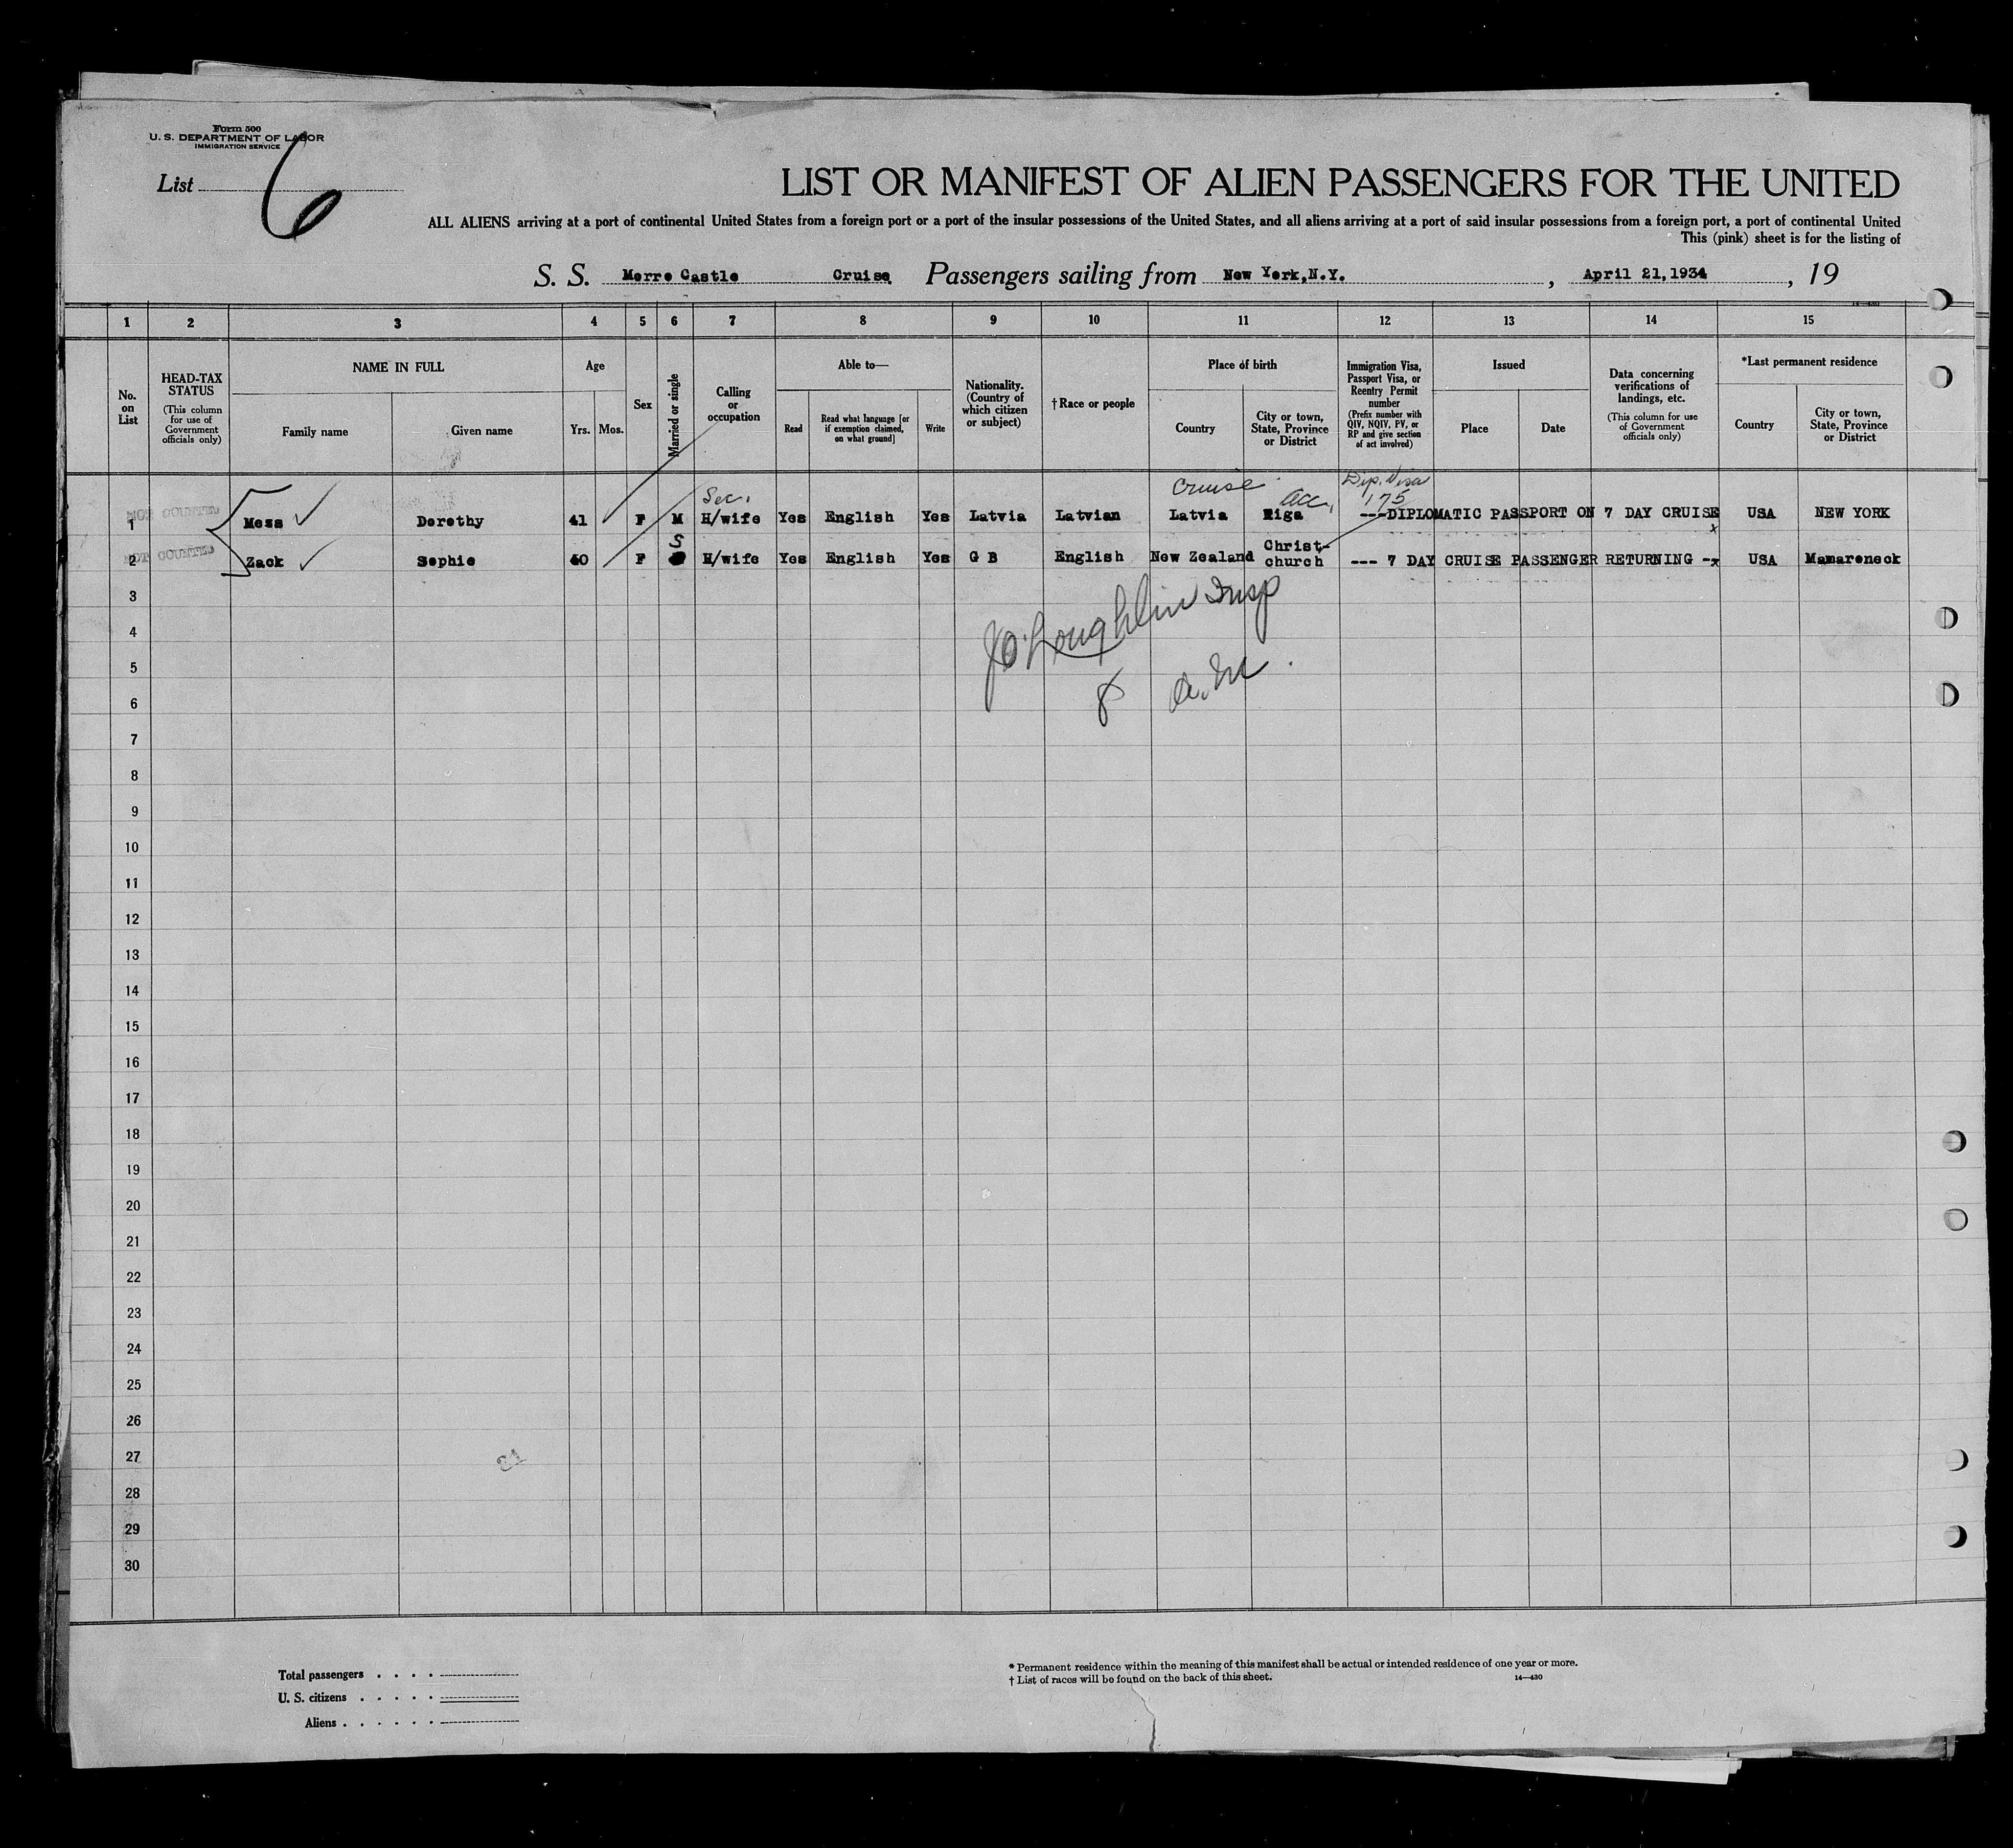 Form 500
U. S. DEPARTMENT OF LABOR
IMMIGRATION SERVICE
List 6
LIST OR MANIFEST OF ALIEN PASSENGERS FOR THE UNITED
ALL ALIENS arriving at a port of continental United States from a foreign port or a port of the insular possessions of the United States, and all aliens arriving at a port of said insular possessions from a foreign port, a port of continental United
This (pink) sheet is for the listing of
S. S. Morro Castle Cruise Passengers sailing from New York, N.Y. , April 21, 1934 , 19
14—430
1 2 3 4 5 6 7 8 9 10 11 12 13 14 15
No. on List
HEAD-TAX STATUS
(This column for use of Government officials only)
NAME IN FULL
Family name
Given name
Age
Yrs.
Mos.
Sex
Married or single
Calling or occupation
Able to—
Read
Read what language [or if exemption claimed, on what ground]
Write
Nationality. (Country of which citizen or subject)
†Race or people
Place of birth
Country
City or town, State, Province or District
Immigration Visa, Passport Visa, or Reentry Permit number
(Prefix number with QIV, NQIV, PV, or RP and give section of act involved)
Issued
Place
Date
Data concerning verifications of landings, etc.
(This column for use of Government officials only)
*Last permanent residence
Country
City or town, State, Province or District
Sec. Cruise Acc, Dip. Visa 175
NOT COUNTED
1 Mess Dorothy 41 F M H/wife Yes English Yes Latvia Latvian Latvia Riga ---DIPLOMATIC PASSPORT ON 7 DAY CRUISE USA NEW YORK
x
S
NOT COUNTED
2 Zack Sophie 40 F H/wife Yes English Yes G B English New Zealand Christ-church --- 7 DAY CRUISE PASSENGER RETURNING -x USA Mamaroneck
3
J O'Loughlin Insp
4
5
8 a.m.
6
7
8
9
10
11
12
13
14
15
16
17
18
19
20
21
22
23
24
25
26
27
28
29
30
Total passengers . . . .
U. S. citizens . . . . .
Aliens . . . . . .
* Permanent residence within the meaning of this manifest shall be actual or intended residence of one year or more.
† List of races will be found on the back of this sheet.
14—430